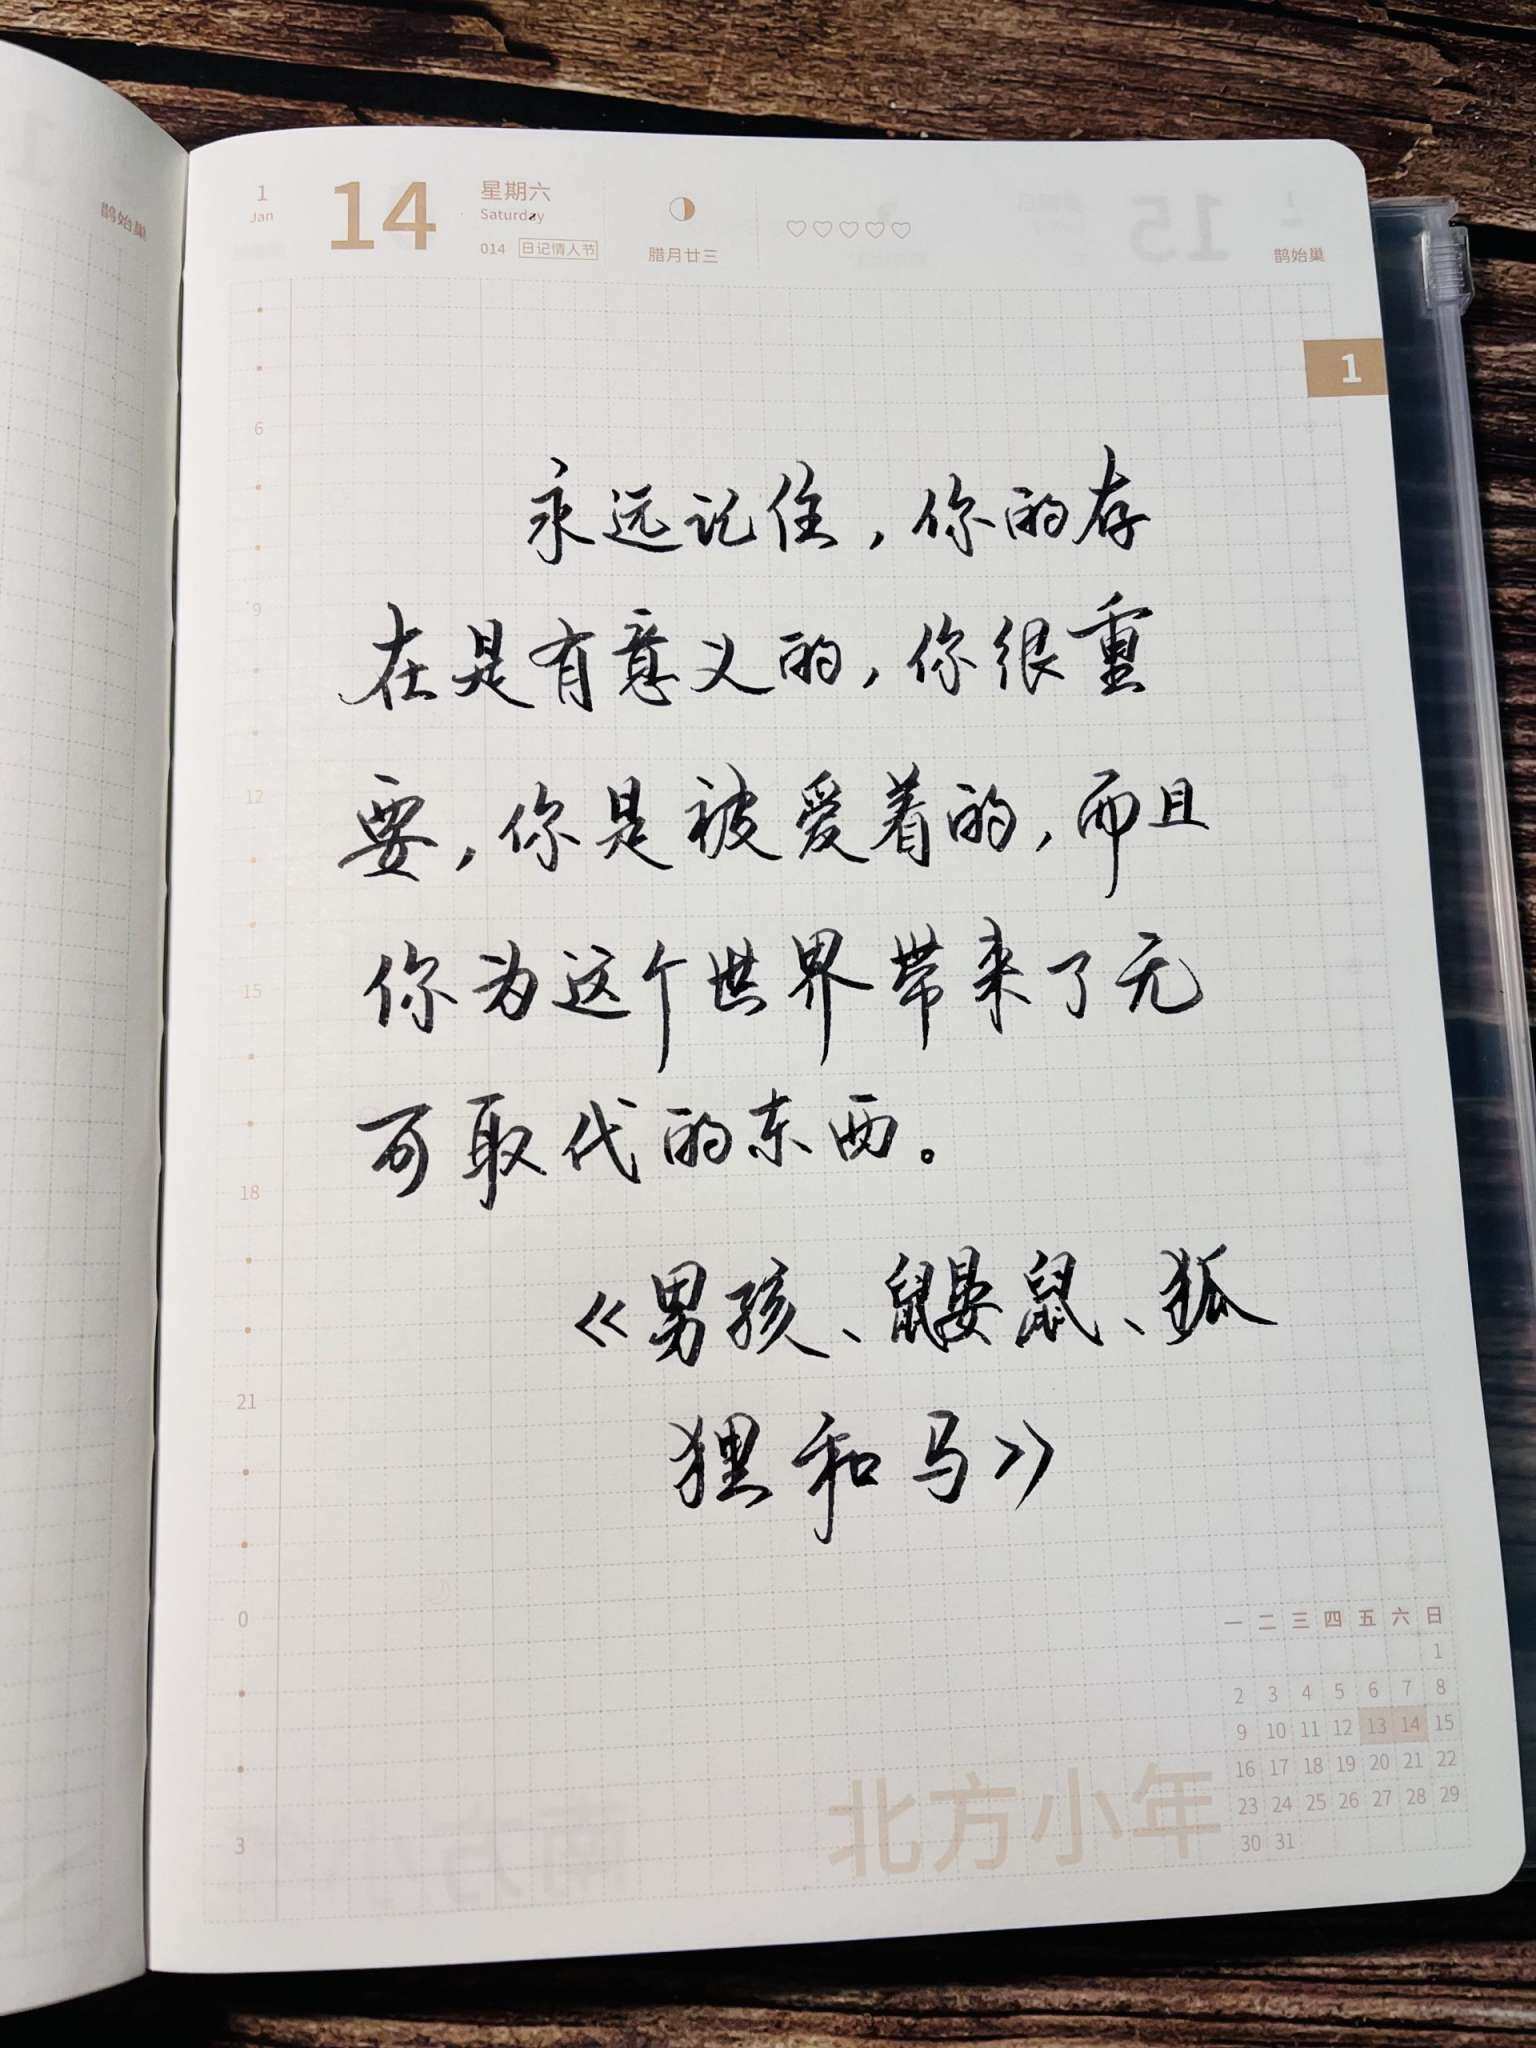 1
Jan
14
星期六
Saturday
014 日记情人节
腊月廿三
鹊始巢
鹊始巢
1
6
9
12
15
18
21
0
3
永远记住，你的存
在是有意义的，你很重
要，你是被爱着的，而且
你为这个世界带来了无
可取代的东西。
《男孩、鼹鼠、狐
狸和马》
一 二 三 四 五 六 日
1
2 3 4 5 6 7 8
9 10 11 12 13 14 15
16 17 18 19 20 21 22
23 24 25 26 27 28 29
30 31
北方小年